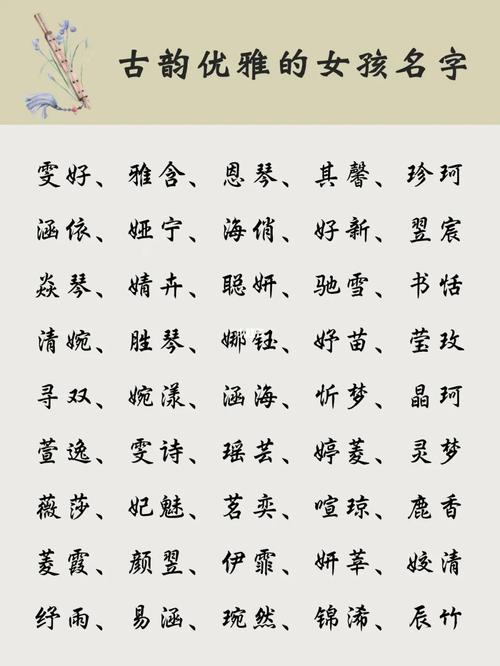 古韵优雅的女孩名字
雯好、雅含、恩琴、其馨、珍珂
涵依、娅宁、海俏、好新、翌宸
焱琴、婧卉、聪妍、驰雪、书恬
清婉、胜琴、娜钰、妤苗、莹玫
寻双、婉漾、涵海、忻梦、晶珂
萱逸、雯诗、瑶芸、婷菱、灵梦
薇莎、妃魅、茗奕、喧琼、鹿香
菱霞、颜翌、伊霏、妍莘、姣清
纾雨、易涵、琬然、锦浠、辰竹